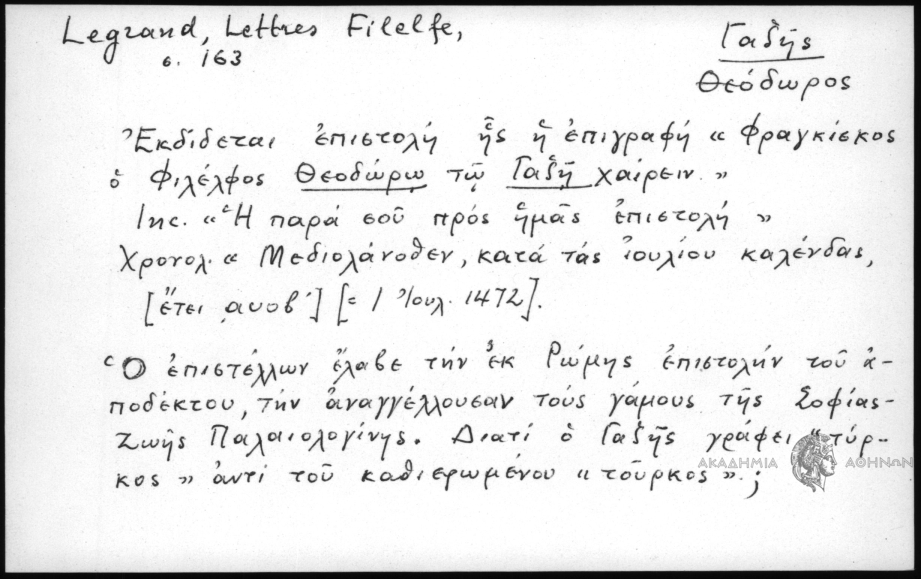 Legrand, Lettres Filelfe,
σ. 163
Γαζῆς
Θεόδωρος
Ἐκδίδεται ἐπιστολή ἧς ἡ ἐπιγραφή « Φραγκίσκος
ὁ Φιλέλφος Θεοδώρῳ τῷ Γαζῇ χαίρειν. »
Inc. « Ἡ παρά σοῦ πρός ἡμᾶς ἐπιστολή »
Χρονολ. « Μεδιολάνοθεν, κατά τάς ἰουλίου καλένδας,
[ἔτει ͵αυοβʹ] [= 1 Ἰουλ. 1472].
Ὁ ἐπιστέλλων ἔλαβε τήν ἐκ Ρώμης ἐπιστολήν τοῦ ἀ-
ποδέκτου, τήν ἀναγγέλλουσαν τούς γάμους τῆς Σοφίας-
Ζωῆς Παλαιολογίνης. Διατί ὁ Γαζῆς γράφει "τύρ-
κος » ἀντί τοῦ καθιερωμένου « τοῦρκος » ;
ΑΚΑΔΗΜΙΑ ΑΘΗΝΩΝ